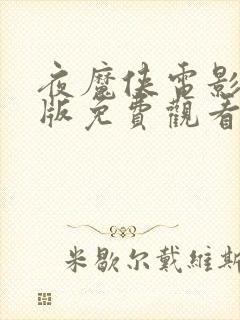 夜魔俠電影
版免費觀看
米歇尔戴維斯